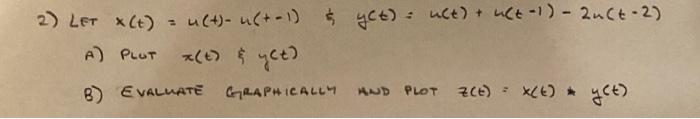 2) LET x(t) = u(t)- u(t-1) & y(t) = u(t) + u(t-1) - 2u(t-2)
A) PLOT x(t) & y(t)
B) EVALUATE GRAPHICALLY AND PLOT z(t) = x(t) * y(t)